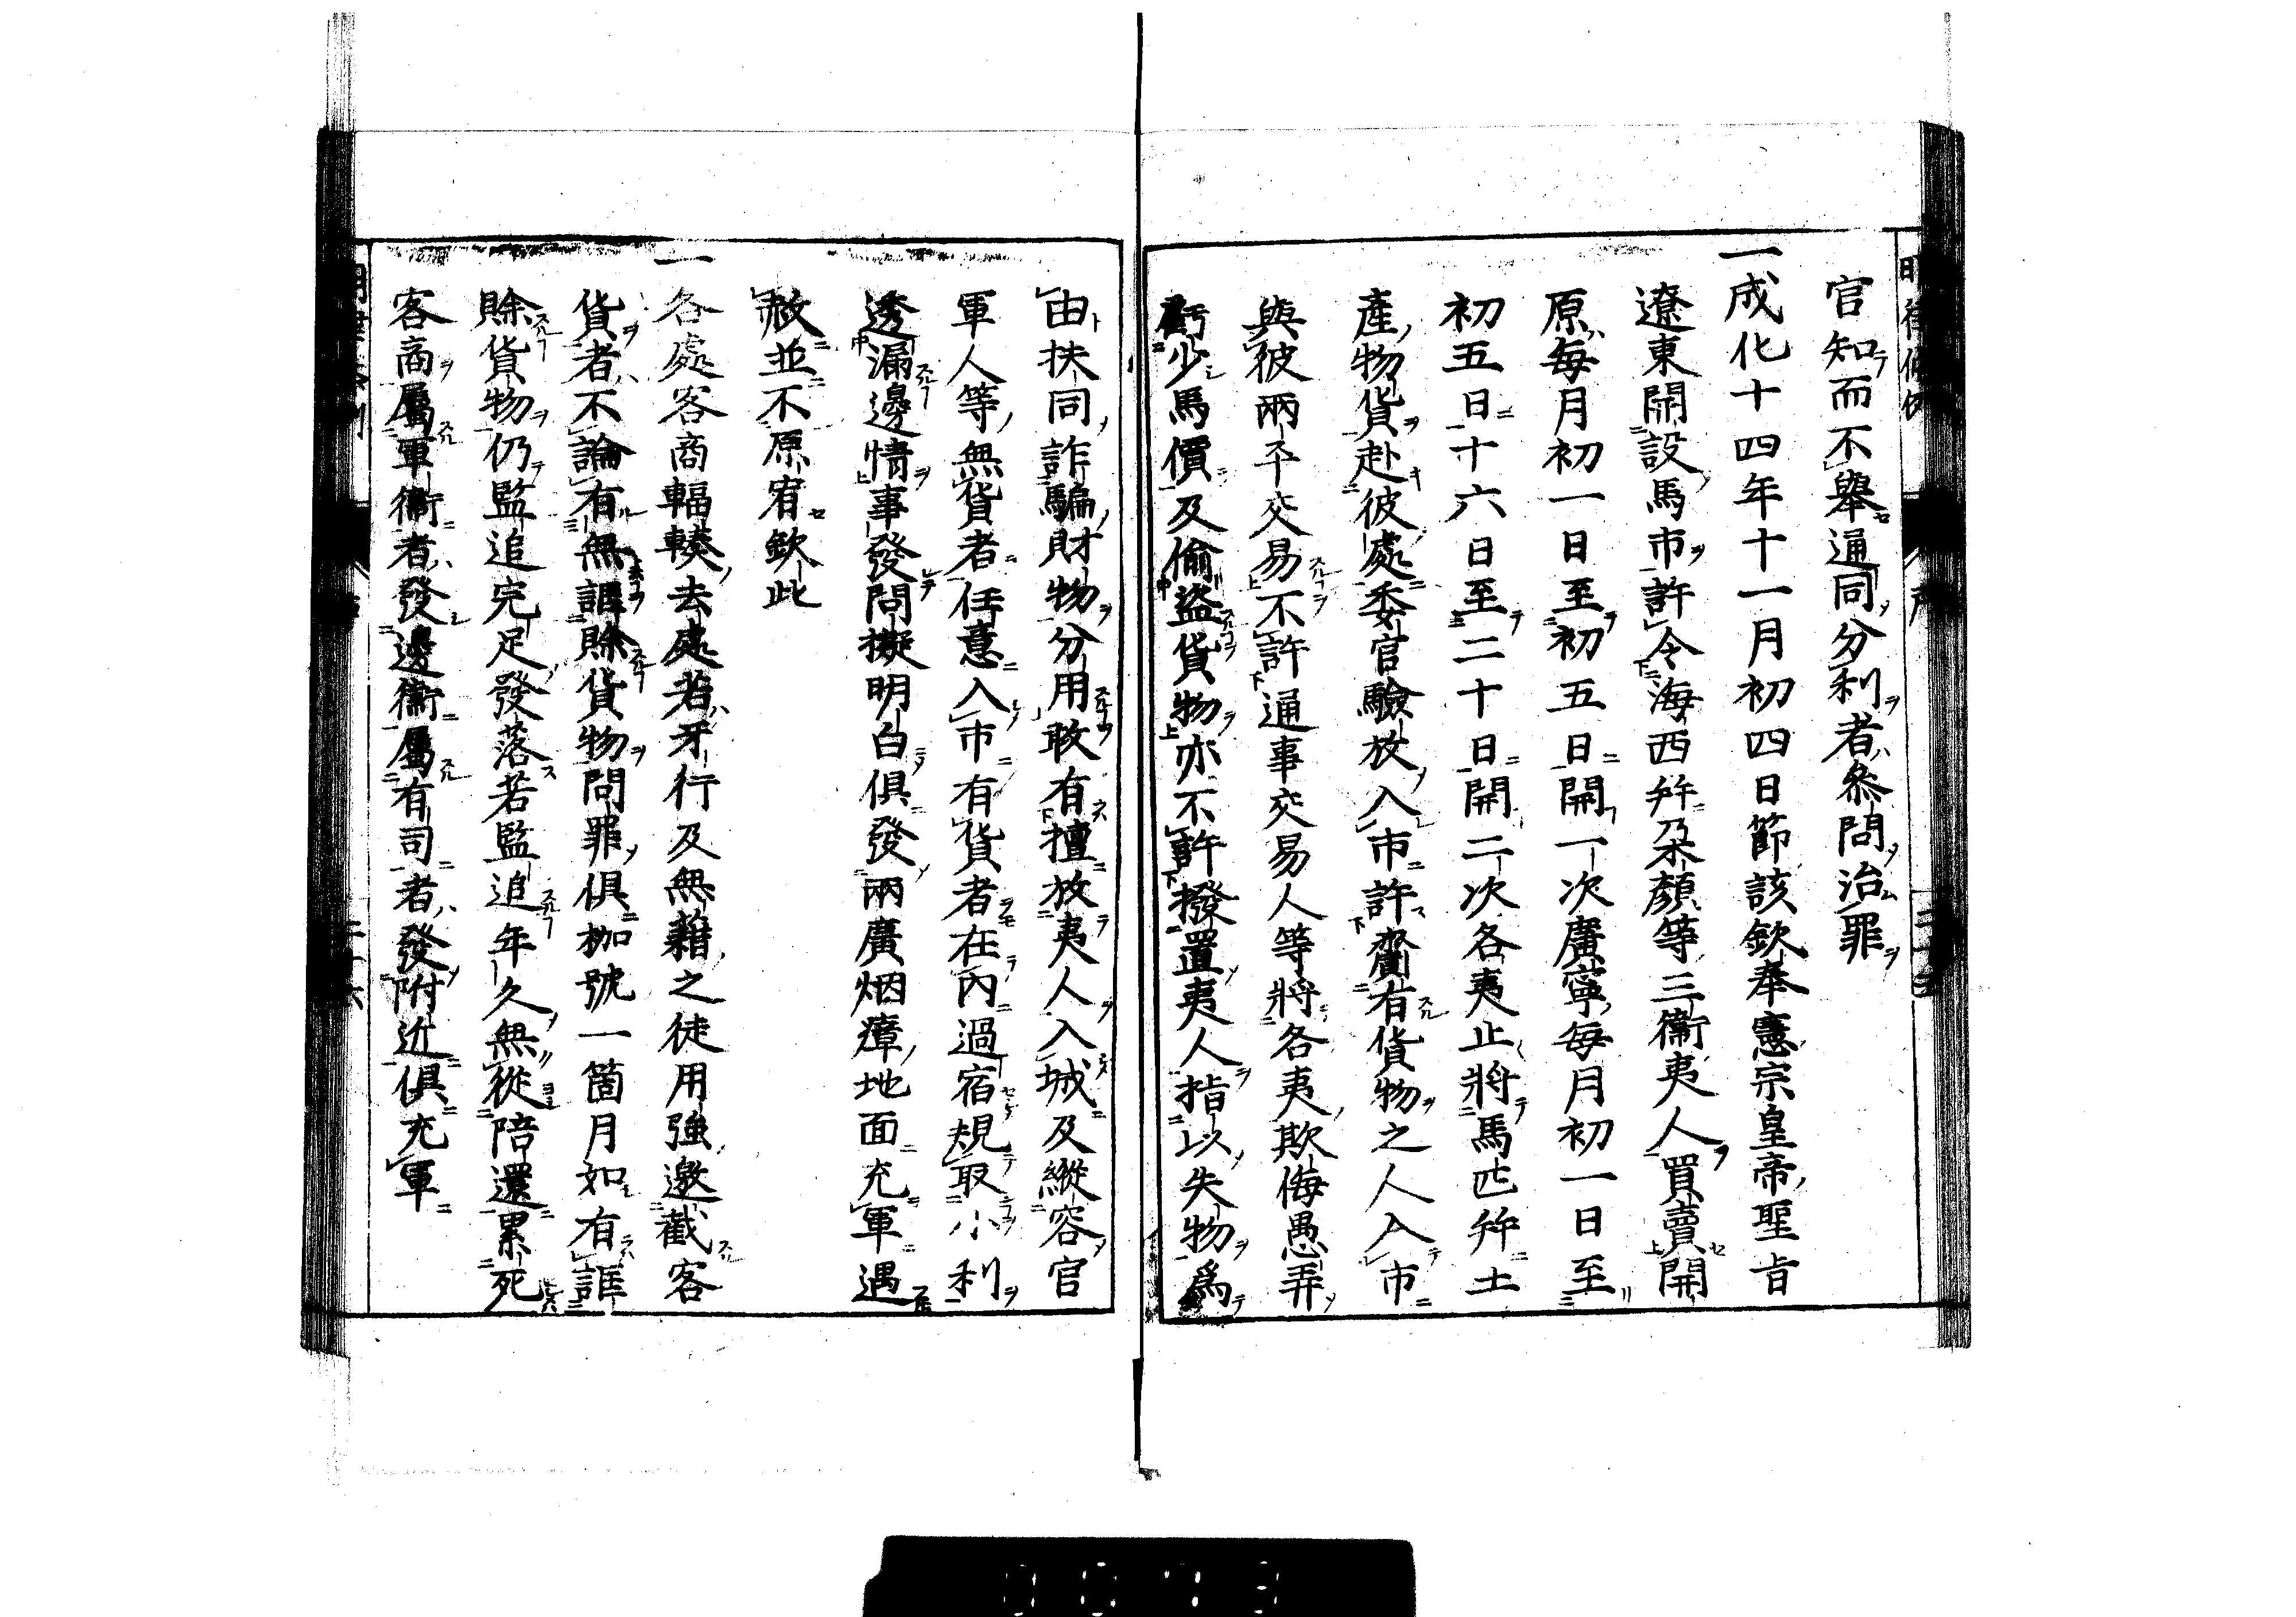 官知而不舉通同分利者叅問治罪
一成化十四年十一月初四日節該欽奉憲宗皇帝聖旨
遼東開設馬市許令海西幷朶顏等三衞夷人買賣開
原每月初一日至初五日開一次廣寧每月初一日至
初五日十六日至二十日開二次各夷止將馬匹幷土
產物貨赴彼處委官驗放入市許齎有貨物之人入市
與彼兩平交易不許通事交易人等將各夷欺侮愚弄
虧少馬價及偷盜貨物亦不許撥置夷人指以失物爲
由扶同詐騙財物分用敢有擅放夷人入城及縱容官
軍人等無貨者任意入市有貨者在內過宿規取小利
透漏邊情事發問擬明白俱發兩廣烟瘴地面充軍遇
赦並不原宥欽此
一各處客商輻輳去處若牙行及無藉之徒用強邀截客
貨者不論有無誆賒貨物問罪俱枷號一箇月如有誆
賒貨物仍監追完足發落若監追年久無從陪還累死
客商屬軍衞者發邊衞屬有司者發附近俱充軍